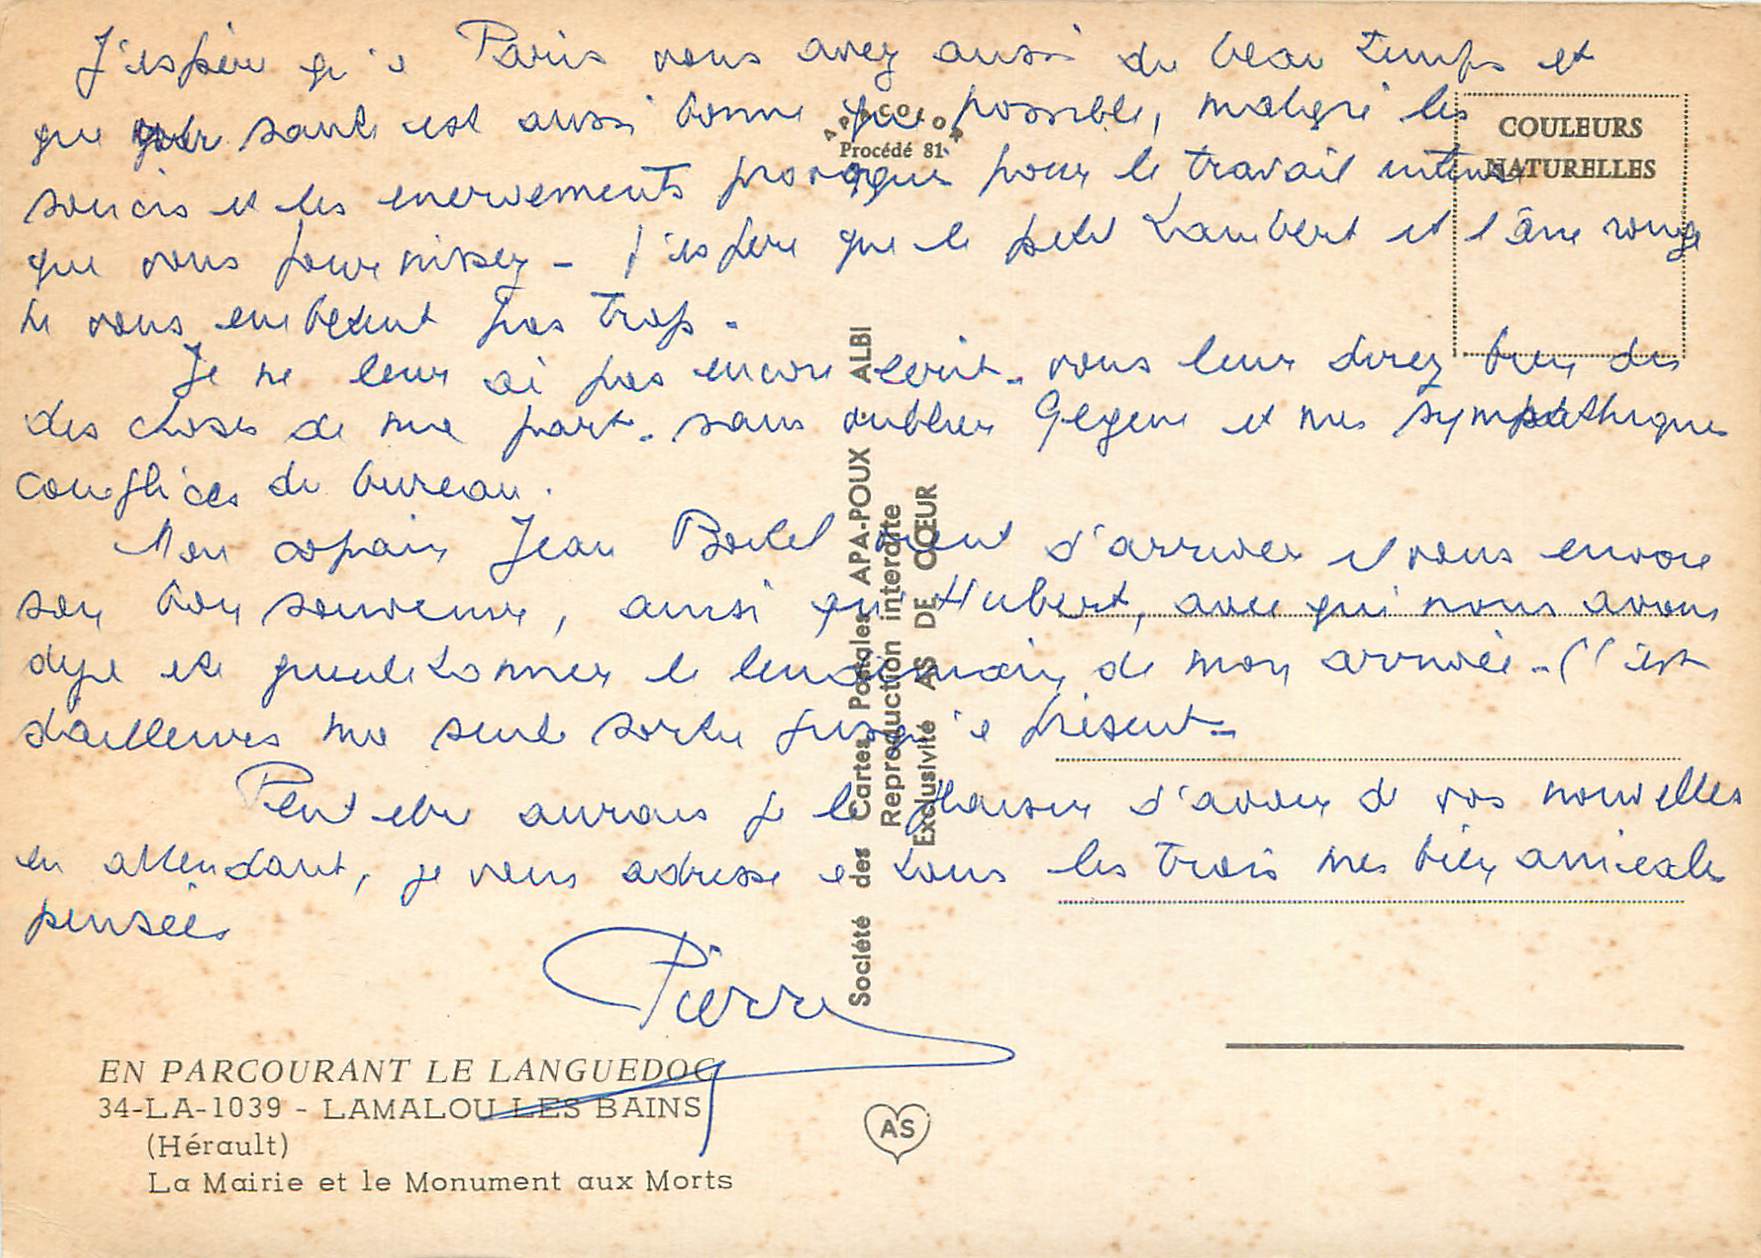 J'espère qu'à Paris vous avez aussi du beau temps et
que votre santé est aussi bonne que possible, malgré les
soucis et les énervements provoqués pour le travail intense
que vous fournissez - J'espère que le petit Lambert et l'âne rouge
ne vous embêtent pas trop.
Je ne leur ai pas encore écrit. vous leur direz bien des
des choses de ma part. sans oublier Gégène et mes sympathiques
complices du bureau.
Mon copain Jean vient d'arriver et vous envoie
son bon souvenir, ainsi que Hubert, avec qui nous avons
déjà été gueuletonner le lendemain de mon arrivée - C'est
d'ailleurs ma seule sortie jusqu'à présent -
Peut être aurais je le plaisir d'avoir de vos nouvelles
en attendant, je vous adresse à tous les trois mes bien amicales
pensées
Pierre
APACOLOR
Procédé 81
COULEURS
NATURELLES
Société des Cartes Postales APA-POUX - ALBI
Reproduction interdite
Exclusivité AS DE CŒUR
EN PARCOURANT LE LANGUEDOC
34-LA-1039 - LAMALOU LES BAINS
(Hérault)
La Mairie et le Monument aux Morts
AS